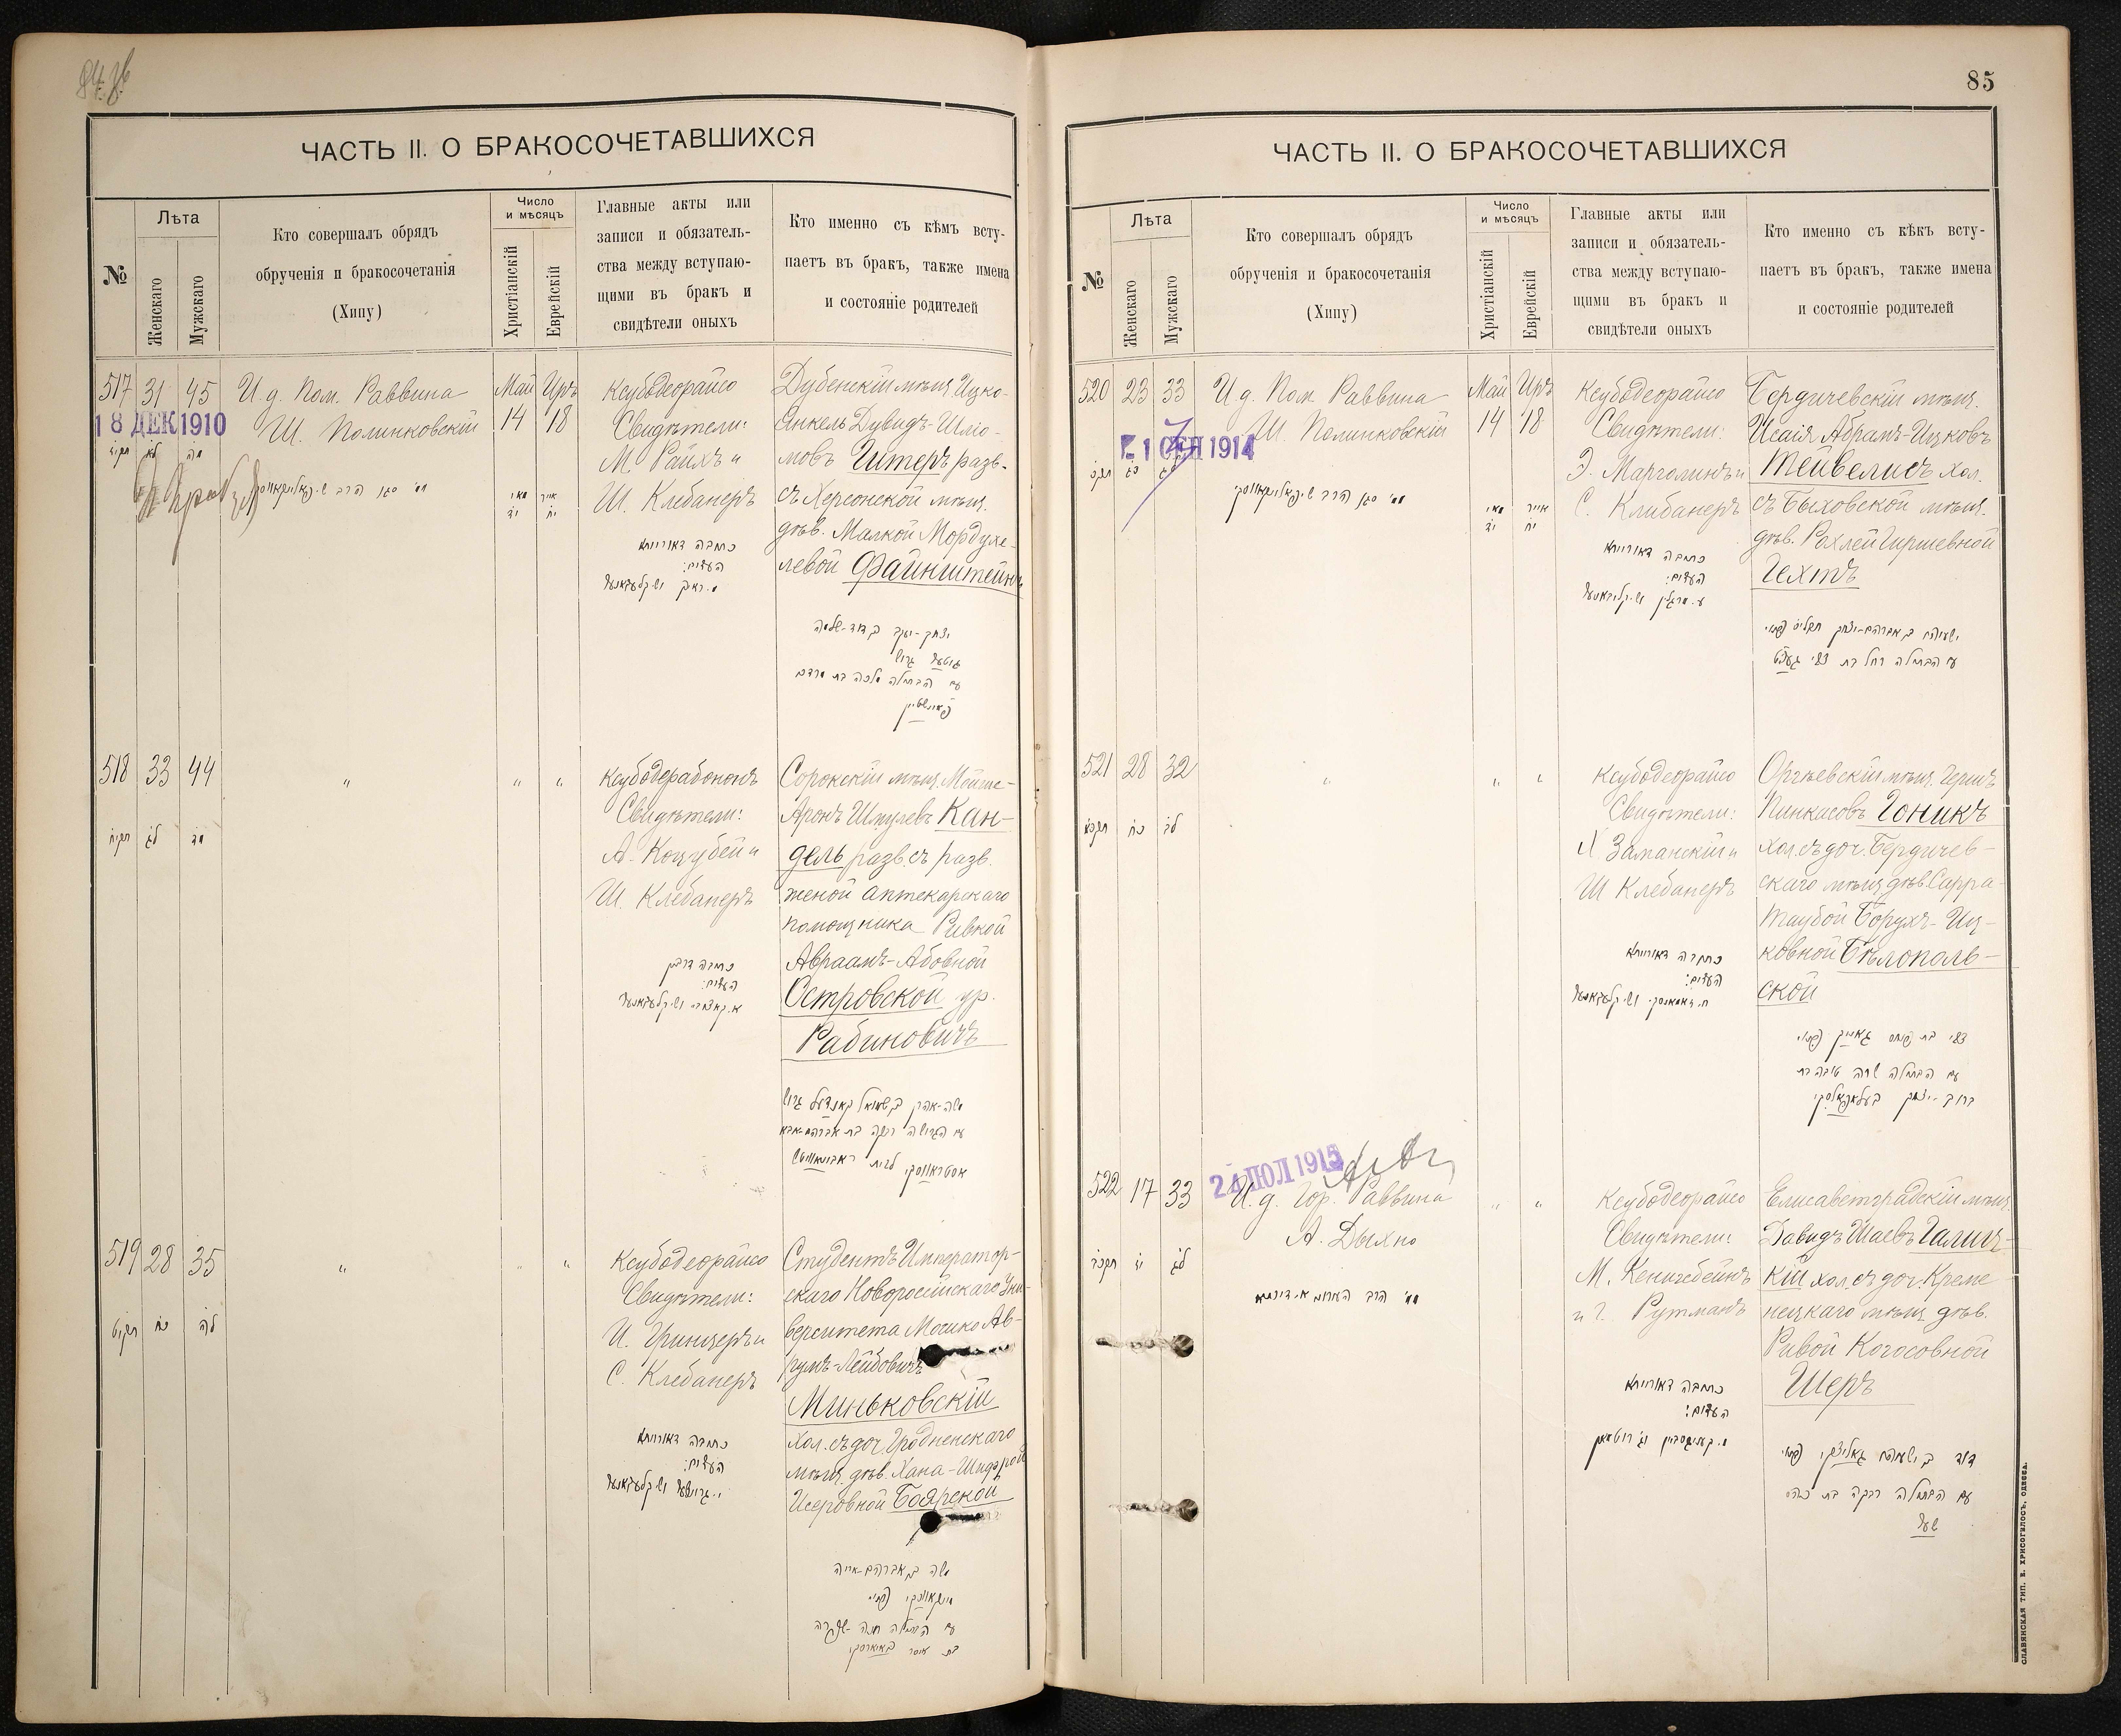 ЧАСТЬ II. О БРАКОСОЧЕТАВШИХСЯ
№
Лѣта
Женскаго
Мужскаго
Кто совершалъ обрядъ
обрученія и бракосочетанія
(Хипу)
Число
и мѣсяцъ
Христіанскій
Еврейскій
Главные акты или
записи и обязатель-
ства между вступаю-
щими въ бракъ и
свидѣтели оныхъ
Кто именно съ кѣмъ всту-
паетъ въ бракъ, также имена
и состояніе родителей
517 31 45
18 ДЕК 1910
И. д. Пом. Раввина
Ш. Полинковскій
Май Иръ
14 18
Ксубодеорайсо
Свидѣтели:
М. Райхъ и
Ш. Клебанеръ
כתובה דאורייתא
העדים:
Дубенскій мѣщ. Ицко-
Янкель Дувидъ-Шлiо-
мовъ Гитеръ разв.
съ Херсонской мѣщ.
дѣв. Малкой Мордухе-
левой Файнштейнъ
יצחק-יעקב בן דוד-שלמה
עם הבתולה מלכה בת מרדכי
518 33 44
"
" "
Ксубодерабононъ
Свидѣтели:
А. Коцубей и
Ш. Клебанеръ
כתובה דרבנן
העדים:
Сорокскій мѣщ. Мойше-
Аронъ Шмулевъ Кан-
дель разв. съ разв.
женой аптекарскаго
помощника Ривкой
Авраамъ-Абовной
Островской ур.
Рабиновичъ
משה-אהרן בן שמואל קאנדעל גרוש
עם הגרושה רבקה בת אברהם-אבא
519 28 35
"
" "
Ксубодеорайсо
Свидѣтели:
И. Гринцеръ и
С. Клебанеръ
כתובה דאורייתא
העדים:
Студентъ Император-
скаго Новороссійскаго Уни-
верситета Мошко Ав-
румъ-Лейбовичъ
Миньковскій
хол. съ доч. Гродненскаго
мѣщ. дѣв. Хана-Шифрой
Исеровной Боярской
עם הבתולה חנה-שפרה
85
ЧАСТЬ II. О БРАКОСОЧЕТАВШИХСЯ
№
Лѣта
Женскаго
Мужскаго
Кто совершалъ обрядъ
обрученія и бракосочетанія
(Хипу)
Число
и мѣсяцъ
Христіанскій
Еврейскій
Главные акты или
записи и обязатель-
ства между вступаю-
щими въ бракъ и
свидѣтели оныхъ
Кто именно съ кѣкъ всту-
паетъ въ бракъ, также имена
и состояніе родителей
520 23 33
1 СЕН 1914
И. д. Пом. Раввина
Ш. Полинковскій
Май Иръ
14 18
Ксубодеорайсо
Свидѣтели:
Э. Марголинъ и
С. Клибанеръ
כתובה דאורייתא
העדים:
Бердичевскій мѣщ.
Исаія Абрамъ-Ицковъ
Тейвелисъ хол.
съ Быховской мѣщ.
дѣв. Рохлей Гиршевной
Гехтъ
521 28 32
"
" "
Ксубодеорайсо
Свидѣтели:
Х Заманскій и
Ш Клебанеръ
כתובה דאורייתא
העדים:
Оргѣевскій мѣщ. Гершъ
Пинкасовъ Гоникъ
хол. съ доч. Бердичев-
скаго мѣщ. дѣв. Сарра-
Таубой Борухъ-Иц-
ковной Бѣлополь-
ской
עם הבתולה שרה טובה בת
522 17 33
24 ІЮЛ 1915
И. д. Гор. Раввина
А. Дыхно
" "
Ксубодеорайсо
Свидѣтели:
М. Кенигсбейнъ
и Г. Рутманъ
כתובה דאורייתא
העדים:
Елисаветградскій мѣщ.
Давидъ Шаевъ Галиц-
кій хол. съ доч. Креме-
нецкаго мѣщ. дѣв.
Ривой Когосовной
Шеръ
עם הבתולה רבקה בת
שער
СЛАВЯНСКАЯ ТИП. Е. ХРИСОГЕЛОСЪ, ОДЕССА.